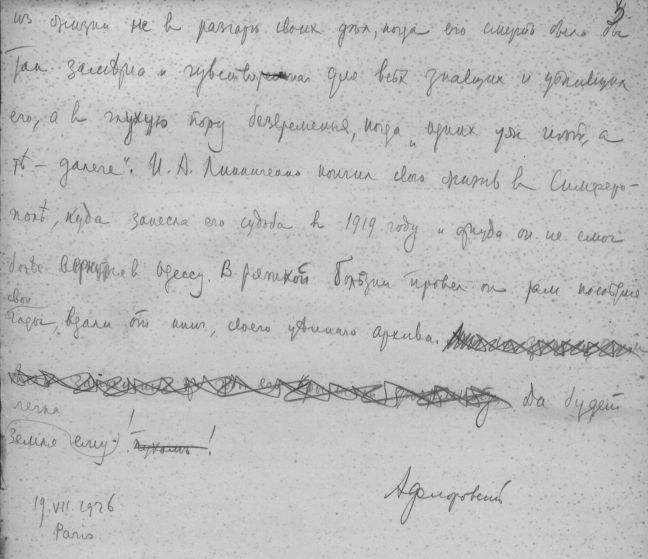 3
из жизни не в разгаръ своихъ дѣлъ, когда его смерть была бы
такъ замѣтна и чувствительна для всѣхъ знавшихъ и цѣнившихъ
его, а въ глухую пору безвременья, когда "однихъ ужъ нѣтъ, а
тѣ – далече". И. А. Линниченко кончилъ свою жизнь въ Симферо-
полѣ, куда занесла его судьба въ 1919 году и откуда он не смог
болѣе вернуться в Одессу. В тяжкой болѣзни провел он там послѣдние
свои
годы, вдали от книг, своего цѣннаго архива.
Да будет
легка
земля ему! пухомъ!
АФлоровский
19.VII.1926
Paris